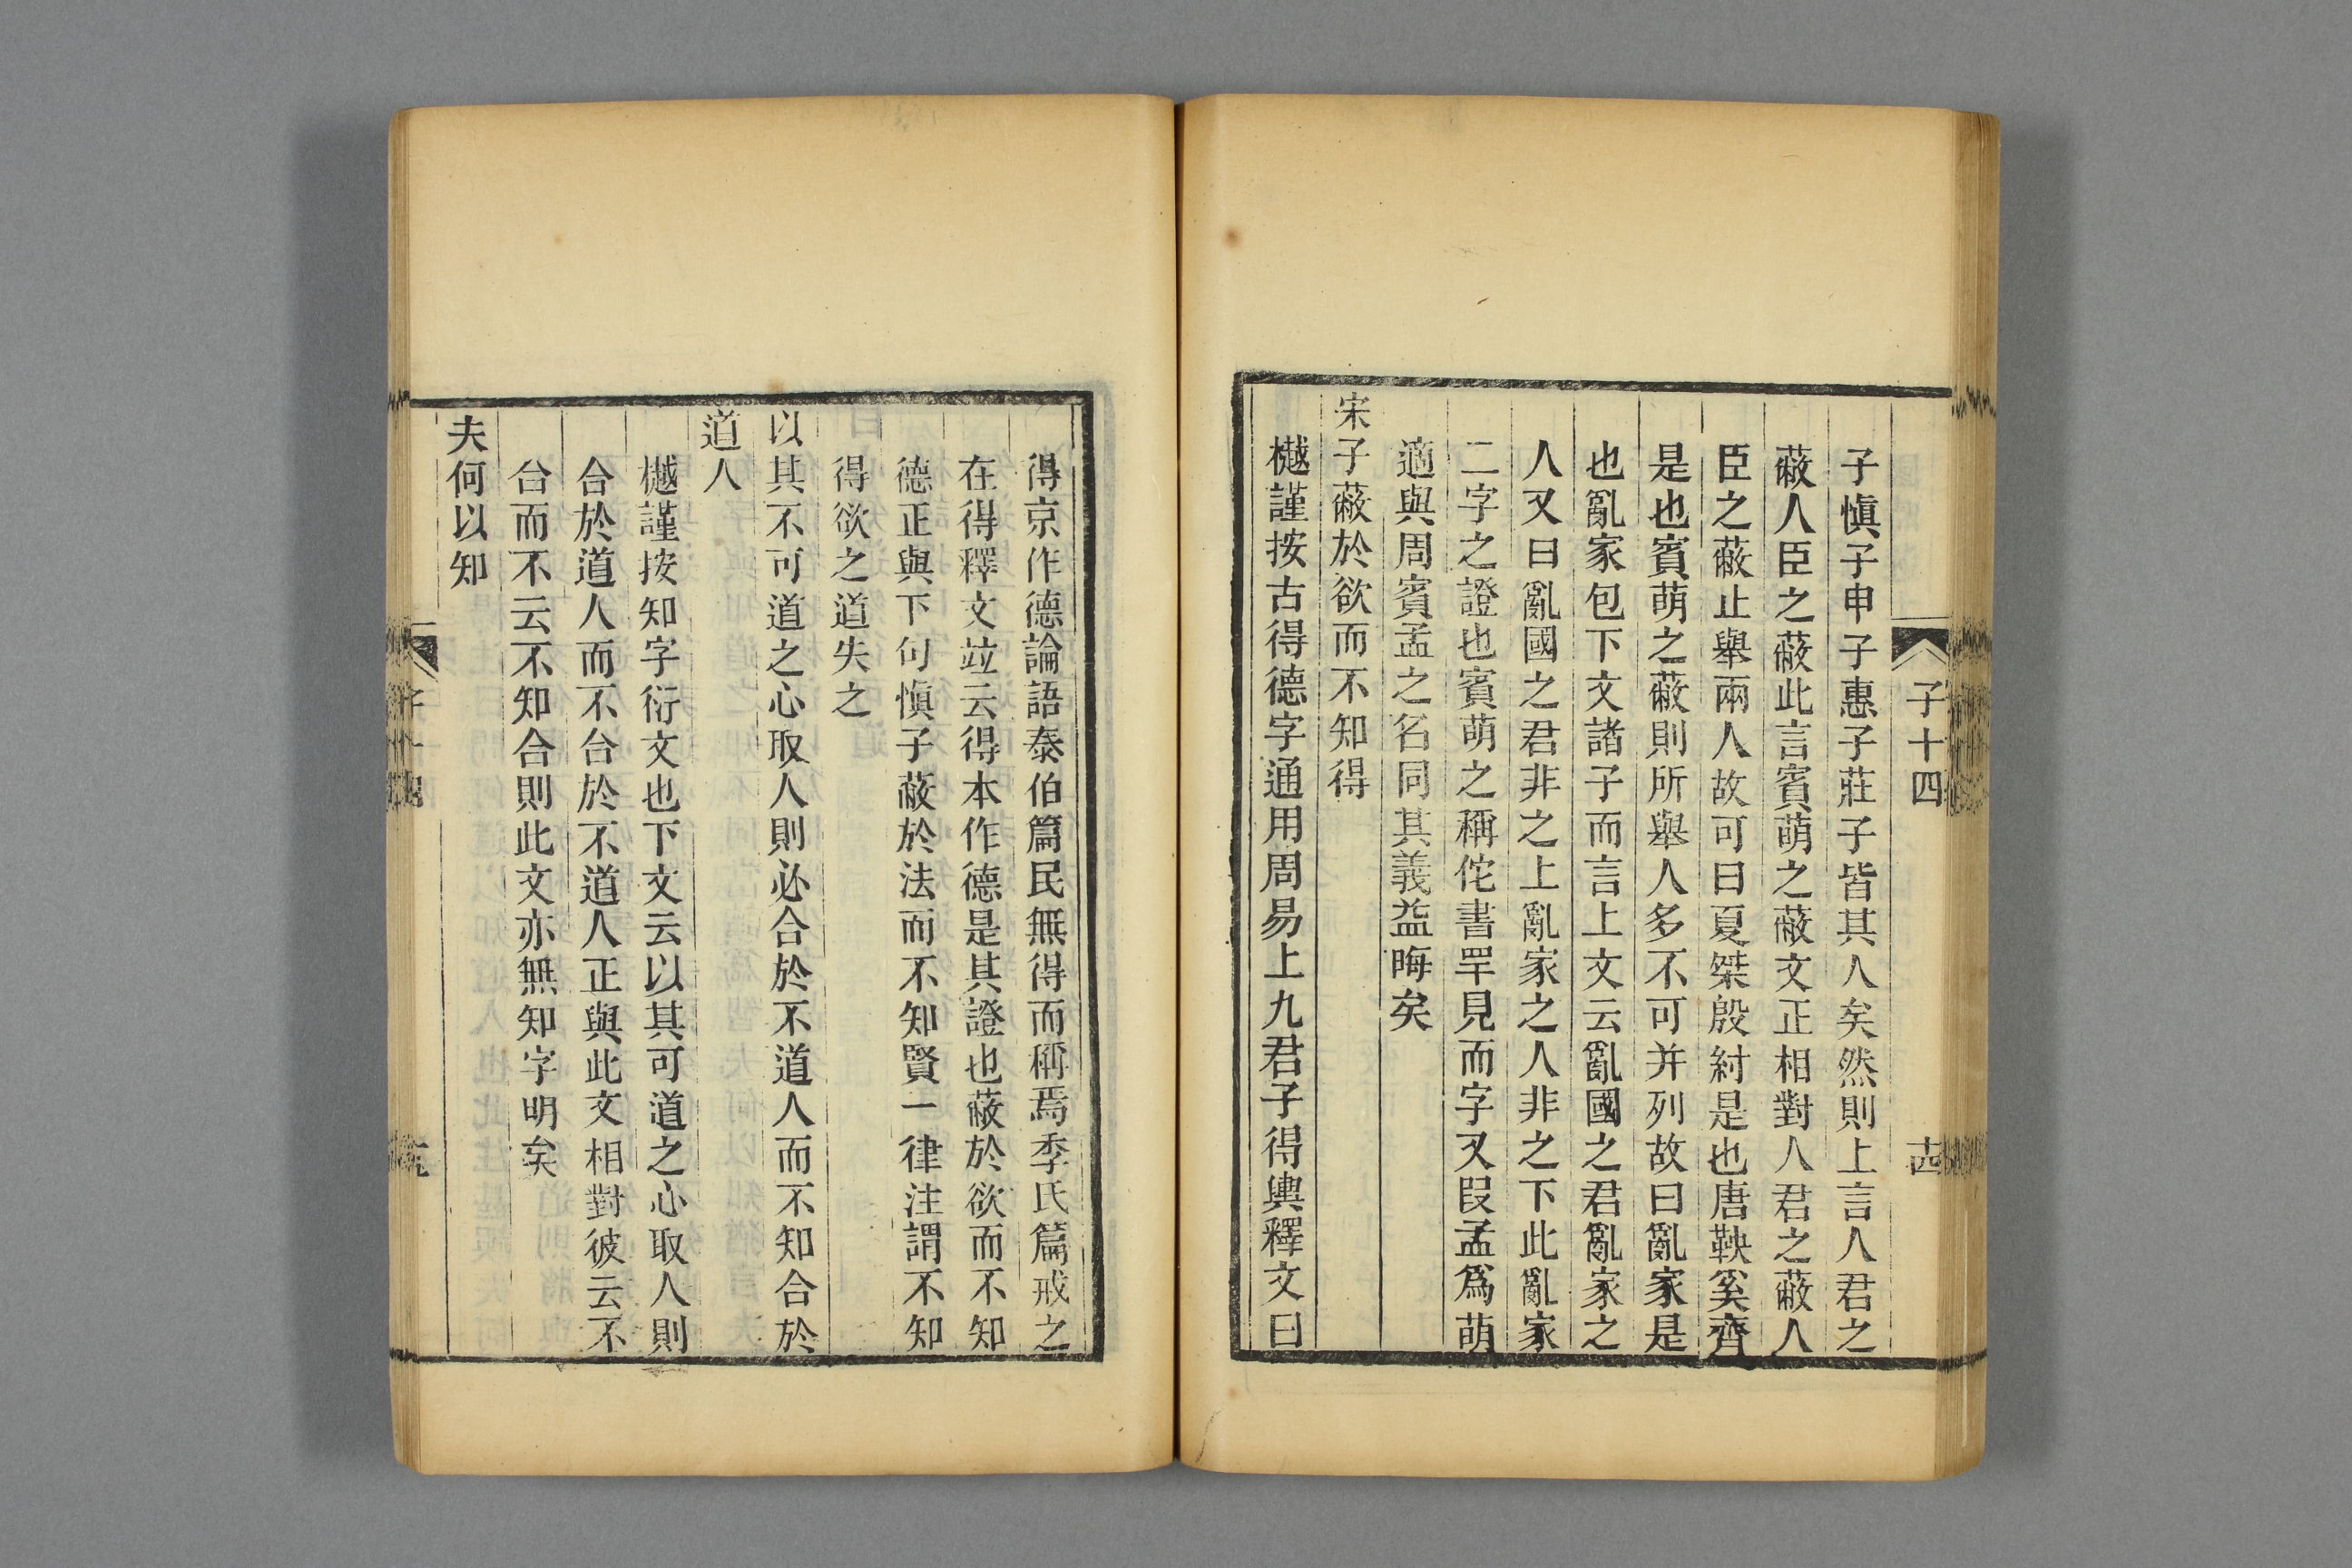 子十四
十四
子愼子申子惠子莊子皆其人矣然則上言人君之
蔽人臣之蔽此言賓萌之蔽文正相對人君之蔽人
臣之蔽止舉兩人故可曰夏桀殷紂是也唐鞅奚齊
是也賓萌之蔽則所舉人多不可并列故曰亂家是
也亂家包下文諸子而言上文云亂國之君亂家之
人又曰亂國之君非之上亂家之人非之下此亂家
二字之證也賓萌之稱佗書罕見而字又叚孟爲萌
適與周賓孟之名同其義益晦矣
宋子蔽於欲而不知得
樾謹按古得德字通用周易上九君子得輿釋文曰
得京作德論語泰伯篇民無得而稱焉季氏篇戒之
在得釋文竝云得本作德是其證也蔽於欲而不知
德正與下句愼子蔽於法而不知賢一律注謂不知
得欲之道失之
以其不可道之心取人則必合於不道人而不知合於
道人
樾謹按知字衍文也下文云以其可道之心取人則
合於道人而不合於不道人正與此文相對彼云不
合而不云不知合則此文亦無知字明矣
夫何以知